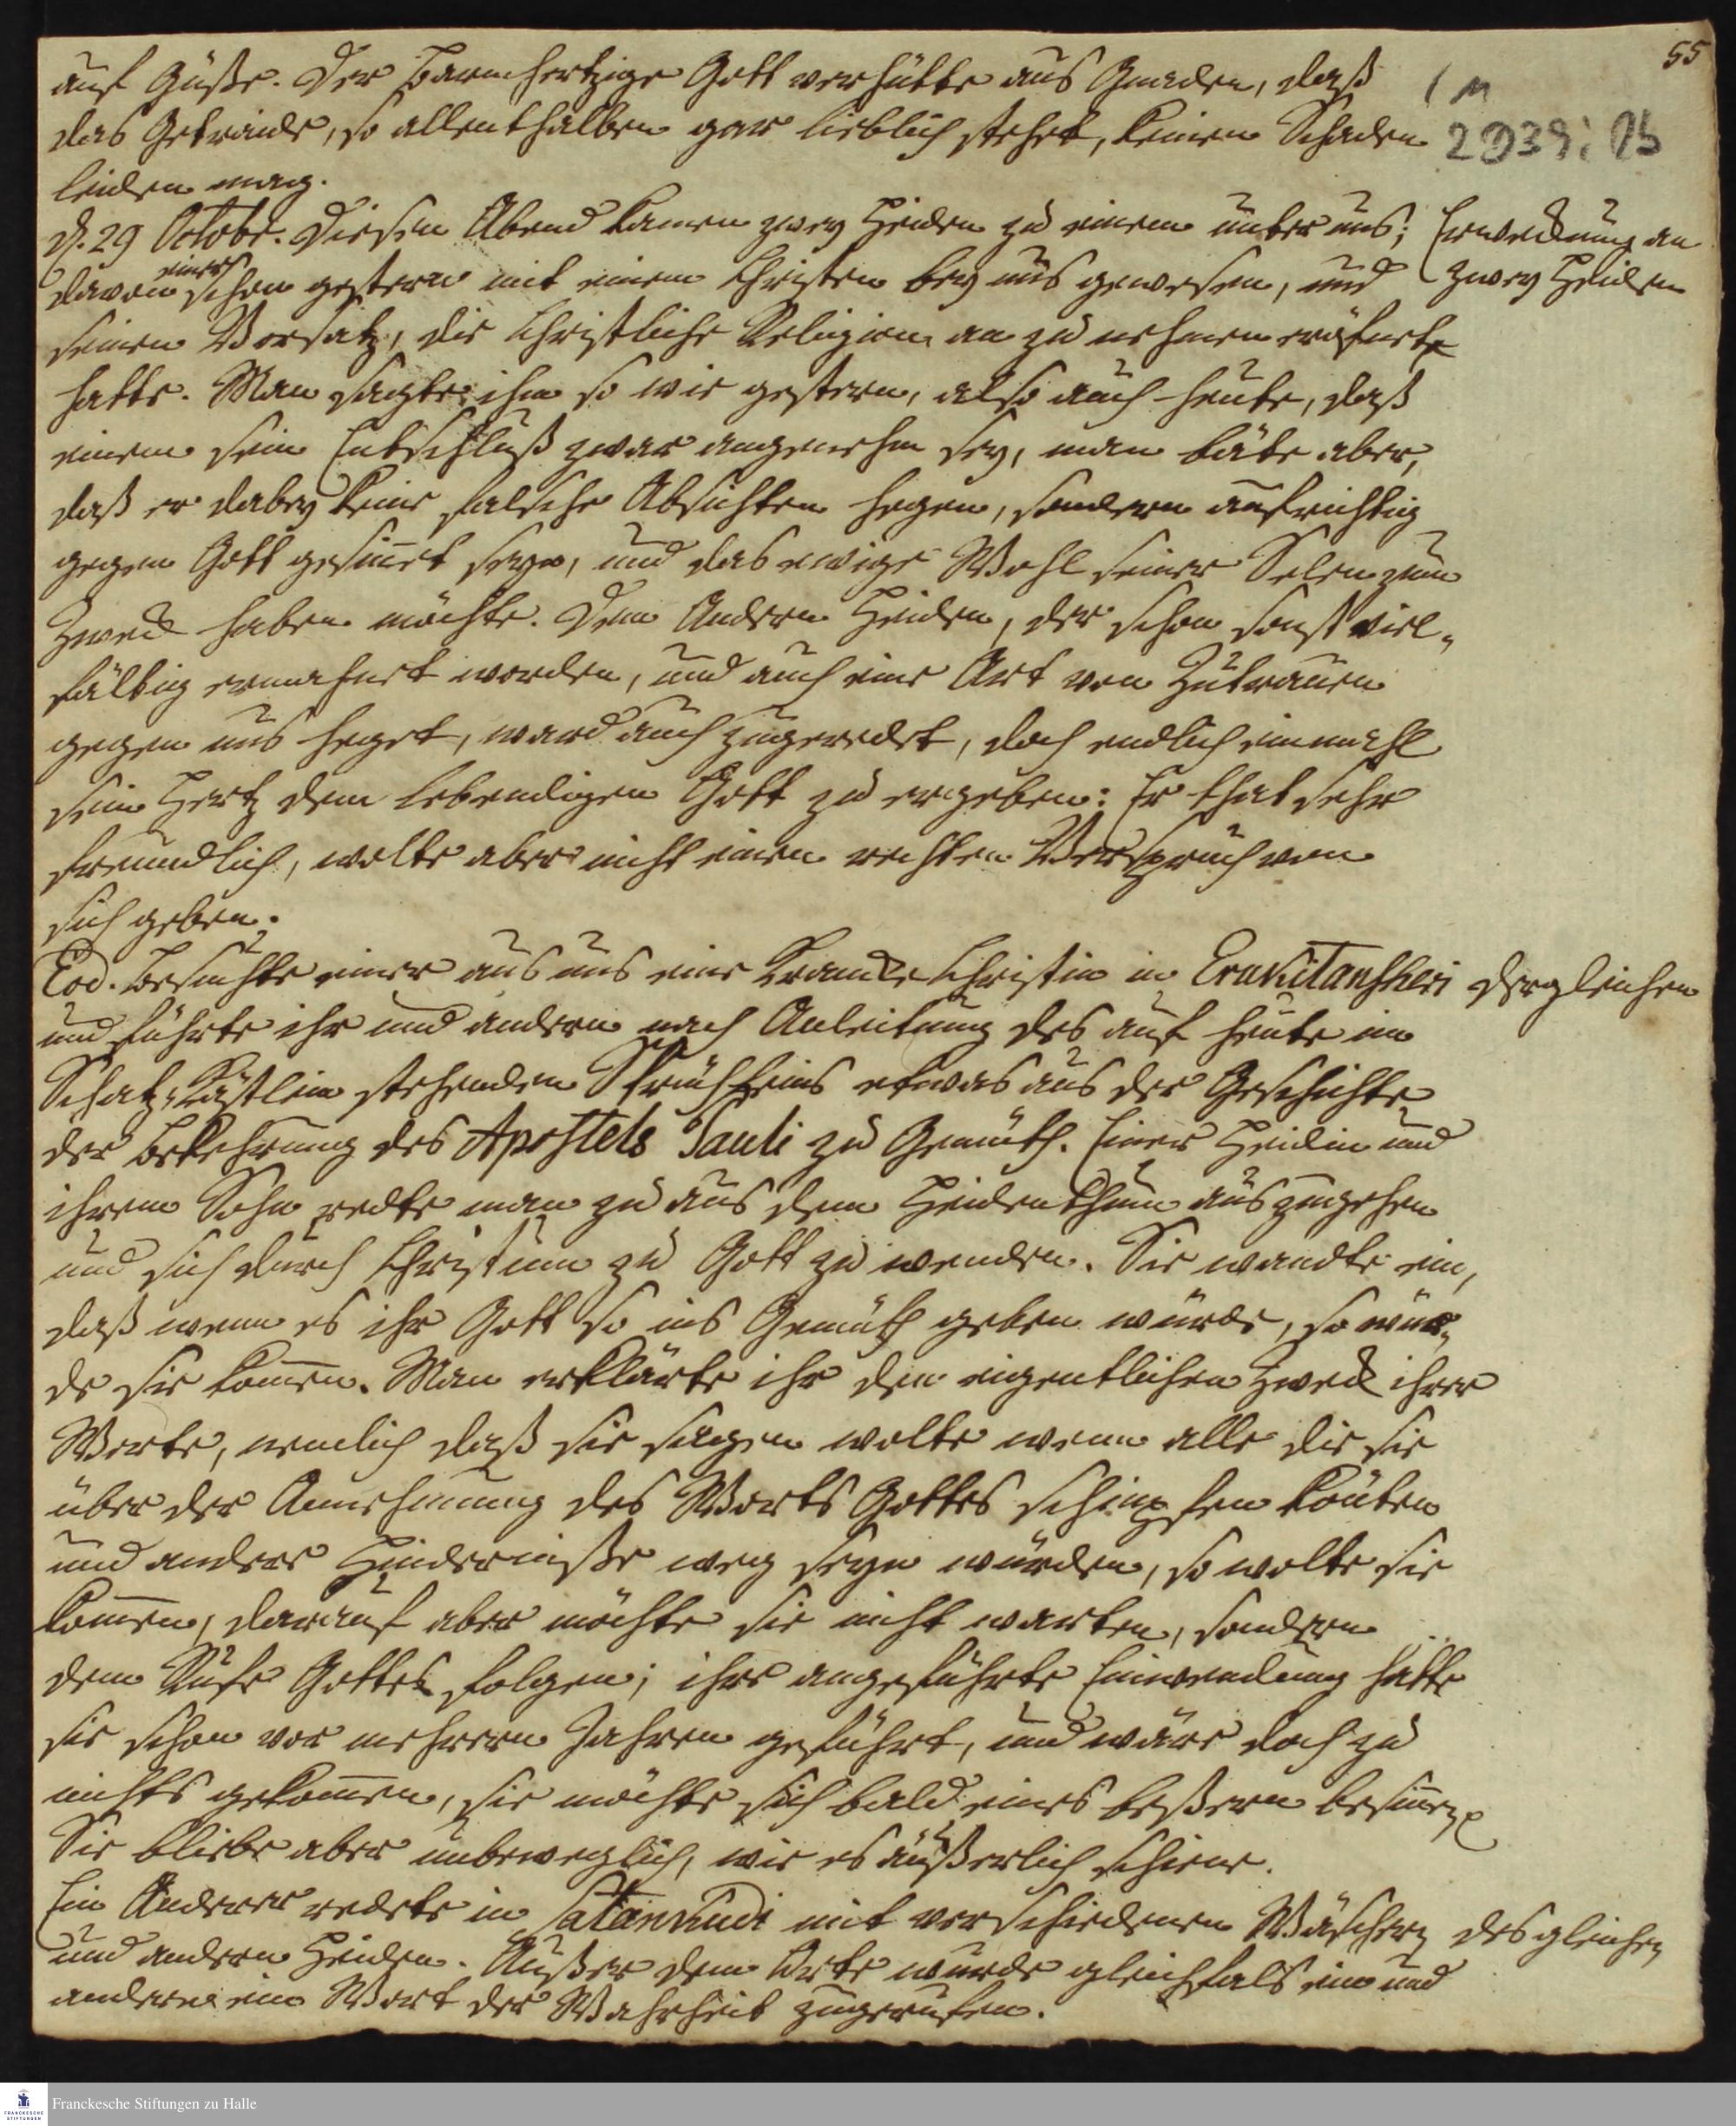 55
auf Güße. Der Barmhertzige Gott verhütte aus Gnaden, daß
das Getraide, so allenthalben gar lieblich stehet, keinen Schaden
leiden mag.
d. 29 Octobr. Diesen Abend kamen zwey Heiden zu einem unter uns;
Erweckung an
zwey Heiden
davon einer schon gestern mit einem Christen bey uns gewesen, und
seinen Vorsatz, die Christliche Religion an zu nehmen eröfnet
hatte. Man sagte ihm so wie gestern, also auch heute, daß
einem sein Entschluß zwar angenehm sey, man bäte aber,
daß er dabey keine falsche Absichten hegen, sondern aufrichtig
gegen Gott gesinnet seyn, und das ewige Wohl seiner Selen zum
Zweck haben möchte. Dem Andern Heiden, der schon sonst viel-
fältig ermahnet worden, und auch eine Art von Zutrauen
gegen uns heget, ward auch zugeredet, doch endlich einmahl
sein Hertz dem lebendigen Gott zu ergeben: Er that sehr
freundlich, wolte aber nicht einen rechten Verspruch von
sich geben.
Eod. besuchte einer aus uns eine Krancke Christin in Erukitanscheri
dergleichen
und führte ihr und andern nach Anleitung des auf heute im
Schatz-Kästlein stehenden Sprüchleins etwas aus der Geschichte
der Bekehrung des Apostels Pauli zu Gemüth. Einer Heidin und
ihrem Sohn redte man zu aus dem Heidenthum auszugehen
und sich durch Christum zu Gott zu wenden. Sie wandte ein,
daß wenn es ihr Gott so ins Gemüth geben würde, so wür-
de sie kommen. Man erklärte ihr den eigentlichen Zweck ihrer
Worte, nemlich daß sie sagen wolte wenn alle die sie
über der Annehmung des Worts Gottes schimpfen könten
und andere Hinderniße weg seyn würden, so wolte sie
kommen, darauf aber möchte sie nicht warten, sondern
dem Rufe Gottes folgen; ihre angeführte Einwendung hätte
sie schon vor mehrern Jahren geführt, und wäre doch zu
nichts gekommen, sie möchte sich bald eines beßern besinnen
Sie bliebe aber unbeweglich, wie es äußerlich schiene.
Ein Anderer redete in Satankudi mit verschiedenen Wäschern
desgleichen
und andern Heiden. Außer dem Orte wurde gleichfals ein und
andern ein Wort der Wahrheit zugerufen.
Franckesche Stiftungen zu Halle